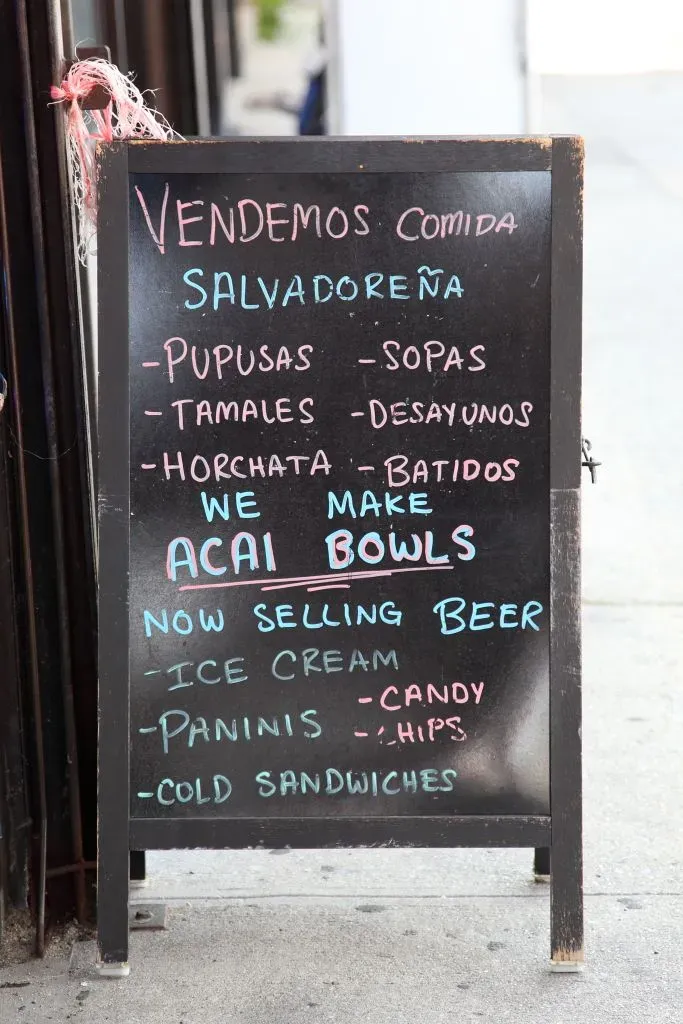 VENDEMOS COMIDA
SALVADOREÑA
-PUPUSAS -SOPAS
-TAMALES -DESAYUNOS
-HORCHATA -BATIDOS
WE MAKE
ACAI BOWLS
NOW SELLING BEER
-ICE CREAM
-CANDY
-PANINIS -CHIPS
-COLD SANDWICHES